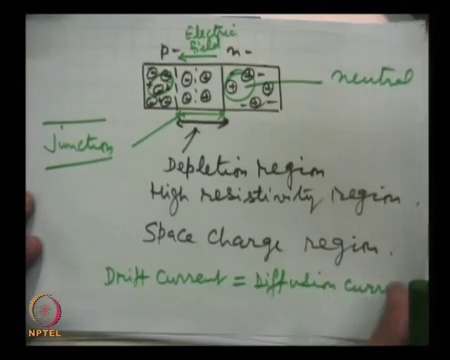 Electric
field
p- n-
neutral
Junction
Depletion region
High resistivity region.
Space Charge region.
Drift Current = Diffusion Curre
NPTEL